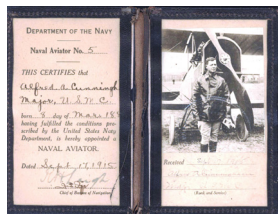 DEPARTMENT OF THE NAVY
Naval Aviator No. 5
THIS CERTIFIES that
Alfred A. Cunningham
Major, U.S.M.C.
born 8 day of March 188
having fulfilled the conditions pre-
scribed by the United States Navy
Department, is hereby appointed a
NAVAL AVIATOR.
Dated Sept. 17, 1915
Chief of Bureau of Navigation
Received
(Rank and Service)